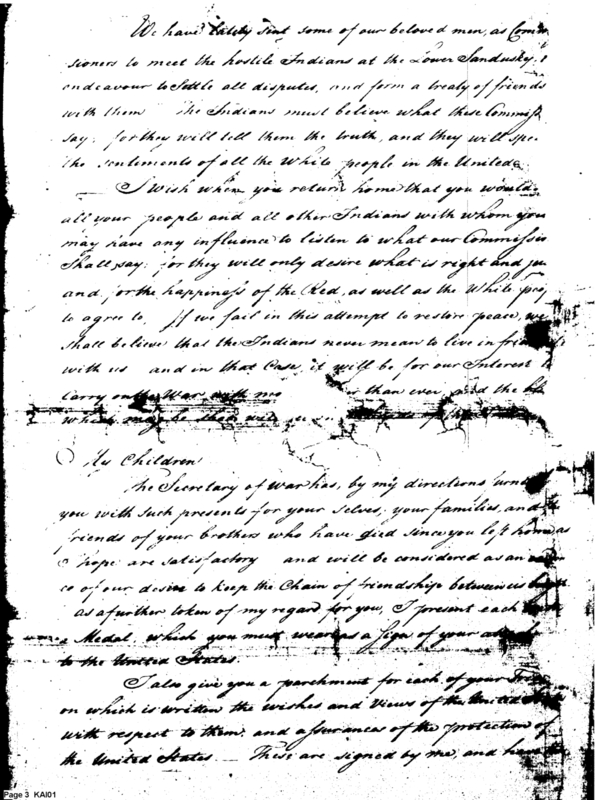 We have lately sent some of our beloved men, as Com
sioners to meet the hostile Indians at the Lower Sandusky,
endeavour to settle all disputes, and form a treaty of friends
with them The Indians must believe what these Commiss
say; for they will tell them the truth, and they will spe
the sentements of all the White people in the United
I wish when you return home that you would
all your people and all other Indians with whom you
may have any influence to listen to what our Commissio
Shall say: for they will only desire what is right and ju
and for the happiness of the Red, as well as the White peop
to agree to If we fail in this attempt to restore peace, we
shall believe that the Indians never mean to live in friendship
with us and in that Case, it will be for our Interest to
Carry on the War with mo er than ever, and the bl
which may be shed
My Children
The Secretary of War has, by my directions furni
you with such presents for your selves, your families, and
friends of your brothers who have died since you left home as
I hope are satisfactory and will be considered as an
ce of our desire to keep the Chain of friendship between us bright
as a further token of my regard for you, I present each
a Medal, which you must wear as a Sign of your
to the United States.
I also give you a parchment for each of your Tribes
on which is written the wishes and views of the United States
with respect to them, and assurances of the protection of
the United States These are signed by me, and have the
Page 3 KAI01